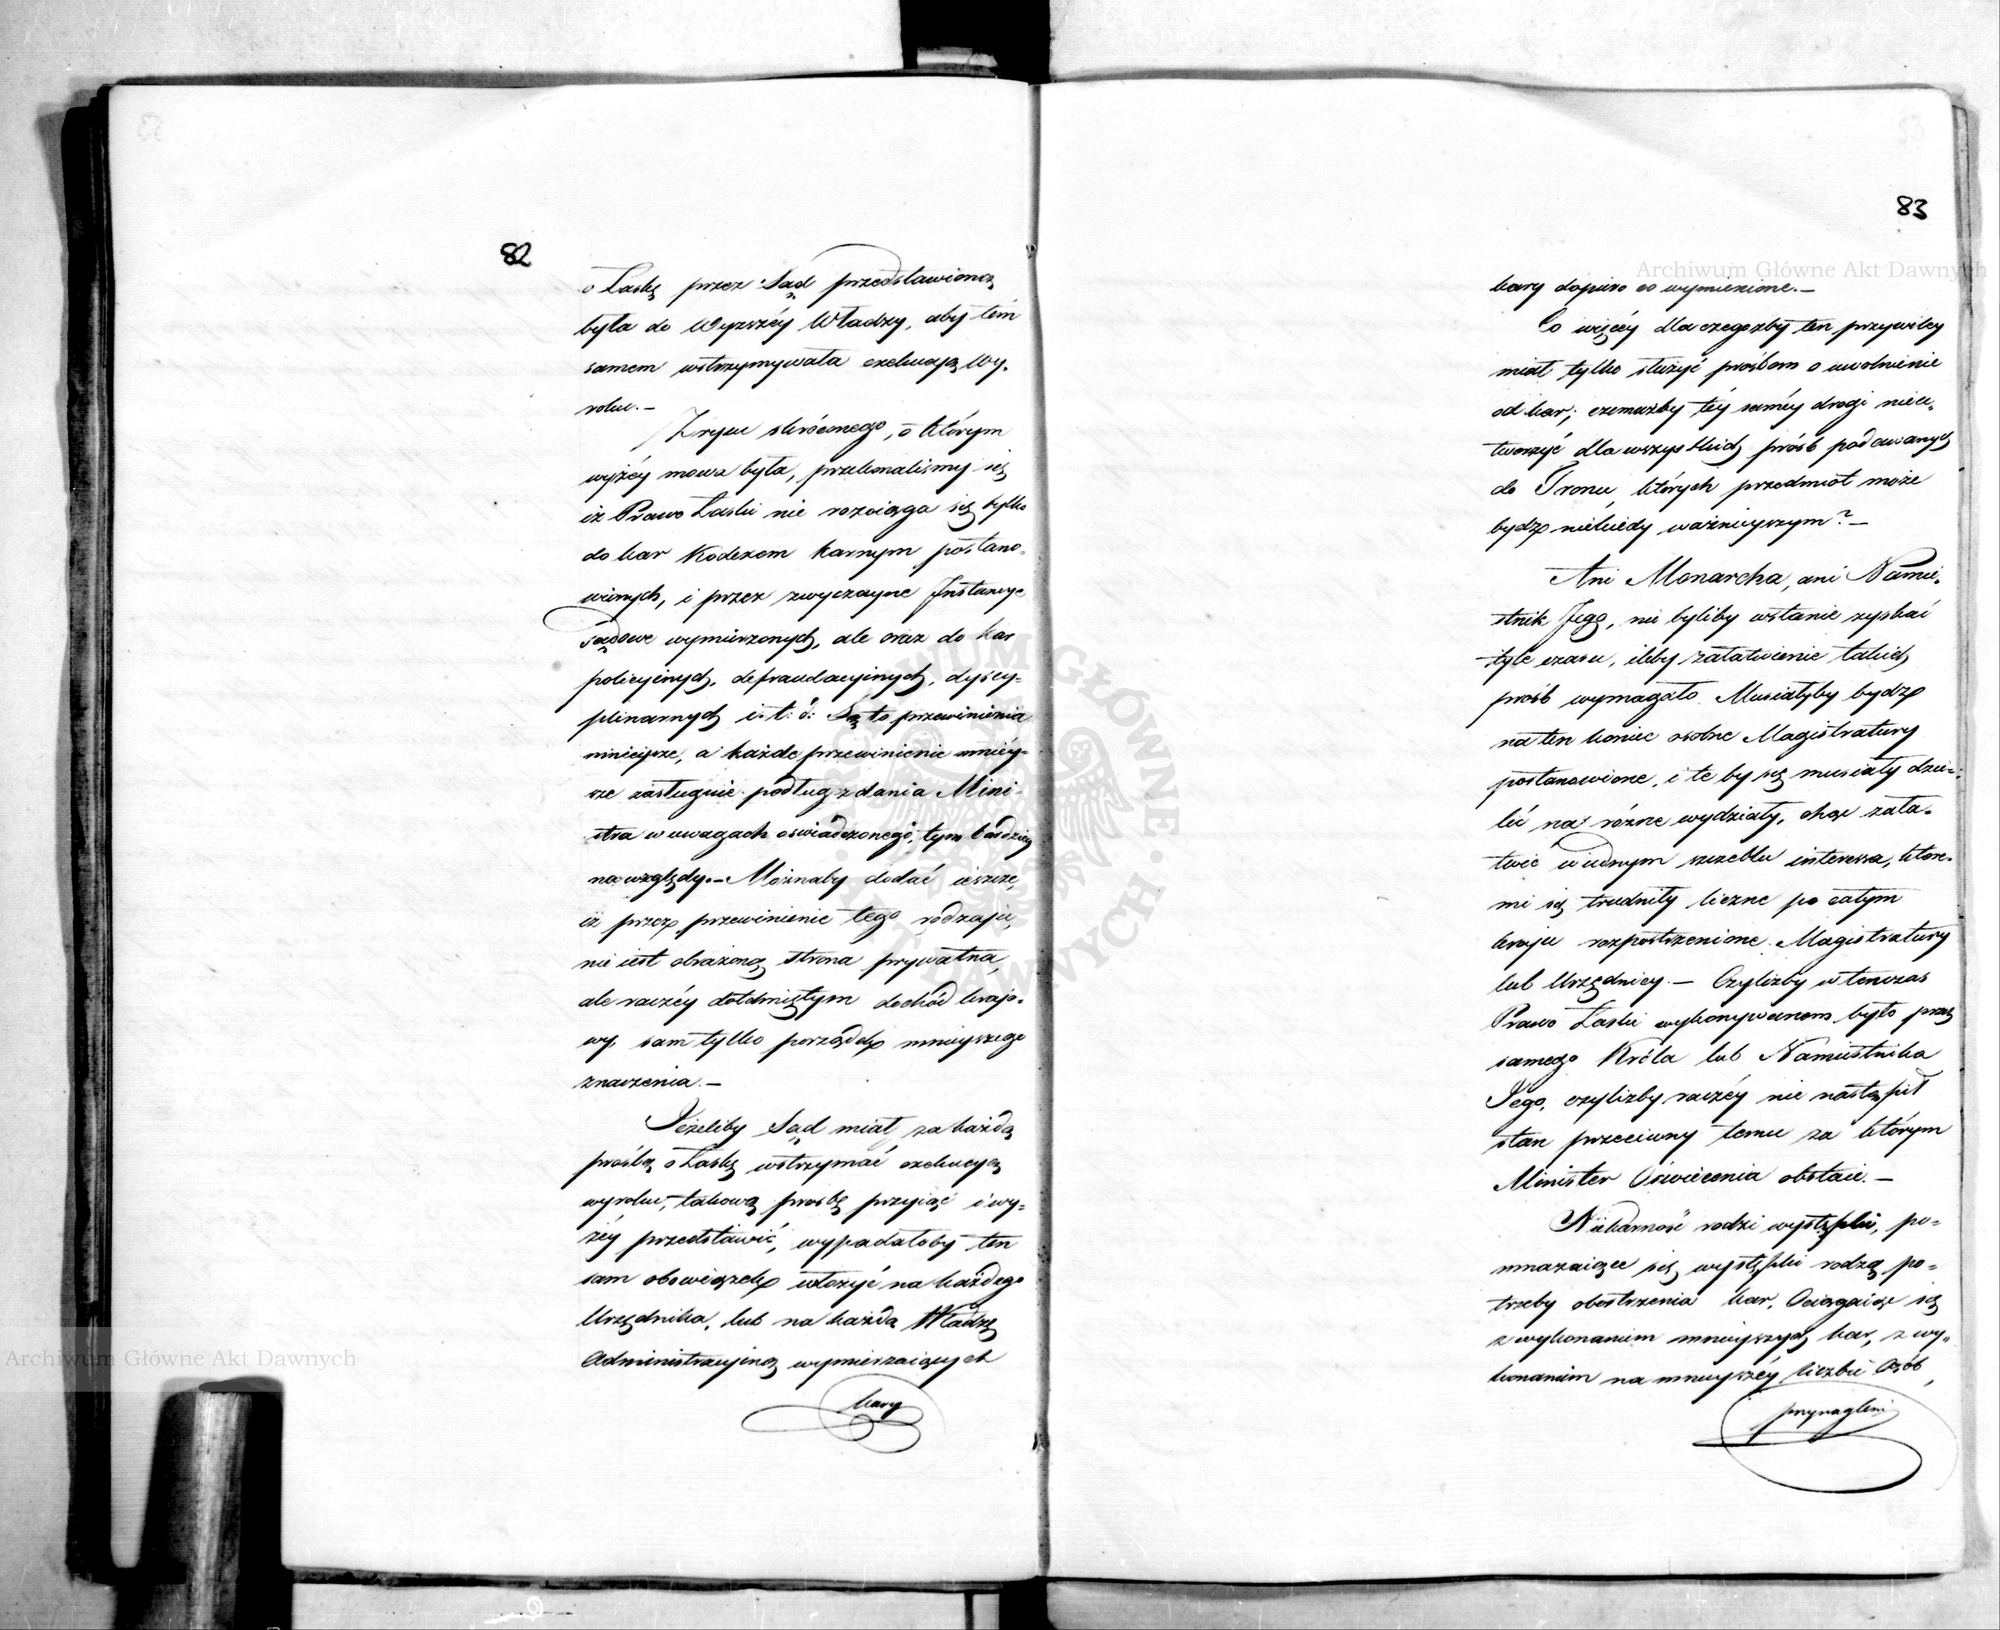 82
o Łaskę przez Sąd przedstawioną
była do Wyższéy Władzy, aby tém
samem wstrzymywała exekucyą Wy-
roku.—
Z rysu skróconego, o którym
wyżéy mowa była, przekonaliśmy się
iż Prawo Łaski nie rozciąga się tylko
do kar Kodexem karnym postano-
wionych, i przez zwyczayne Instancye
Sądowe wymierzonych, ale oraz do kar
policyinych, defraudacyinych, dyscy-
plinarnych i.t.d: Są to przewinienia
mnieysze, a każde przewinienie mniéy-
sze zasługuie podług zdania Mini-
stra w uwagach oświadczonego, tym bardziey
na względy.— Możnaby dodać ieszcze,
iż przez przewinienie tego rodzaju,
nie iest obrażoną strona prywatna,
ale raczéy dotkniętym dochód krajo-
wy, sam tylko porządek mnieyszego
znaczenia.—
Jeżeliby Sąd miał za każdą
prośbą o Łaskę wstrzymać exekucyą
wyroku, takową prośbę przyiąć i wy-
żéy przedstawić, wypadałoby ten
sam obowiązek włożyć na każdego
Urzędnika, lub na każdą Władzę
Administracyiną wymierzaiących
kary
83
kary dopiero co wymienione.—
Co więcéy dla czegożby ten przywiléy
miał tylko służyć prośbom o uwolnienie
od kar; czemużby téy saméy drogi nieu-
tworzyć dla wszystkich próśb podawanych
do Tronu, których przedmiot może
bydź niekiedy ważnieyszym?—
Ani Monarcha, ani Namie-
stnik Jego, nie byliby wstanie zyskać
tyle czasu, ileby załatwienie takich
próśb wymagało. Musiałyby bydź
na ten koniec osobne Magistratury
postanowione, i te by się musiały dzie-
lić na różne wydziały, chcąc zała-
twić w iednym szczeblu interessa, które-
mi się trudniły liczne po całym
kraju rozpostrzenione Magistratury
lub Urzędnicy.— Czyliżby wtenczas
Prawo Łaski wykonywanem było przez
samego Króla lub Namiestnika
Jego, czyliżby raczéy nie nastąpił
stan przeciwny temu za którym
Minister Oświecenia obstaie.—
Niekarność rodzi występki, po-
mnażaiące się występki rodzą po-
trzeby obostrzenia kar. Ociągaiąc się
z wykonaniem mnieyszych kar, z wy-
konaniem na mnieyszéy liczbie Osób,
przynagleni
Archiwum Główne Akt Dawnych
Archiwum Główne Akt Dawnych
ARCHIWUM GŁÓWNE AKT DAWNYCH